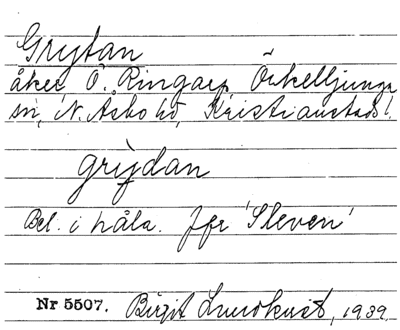 Grytan
åker Ö. Ringarp Örkelljunga
sn, N. Åsbo hd, Kristianstads l.
grỳdan
Bel. i håla. Jfr 'Sleven'
Nr 5507. Birgit Lundkvist, 1939.